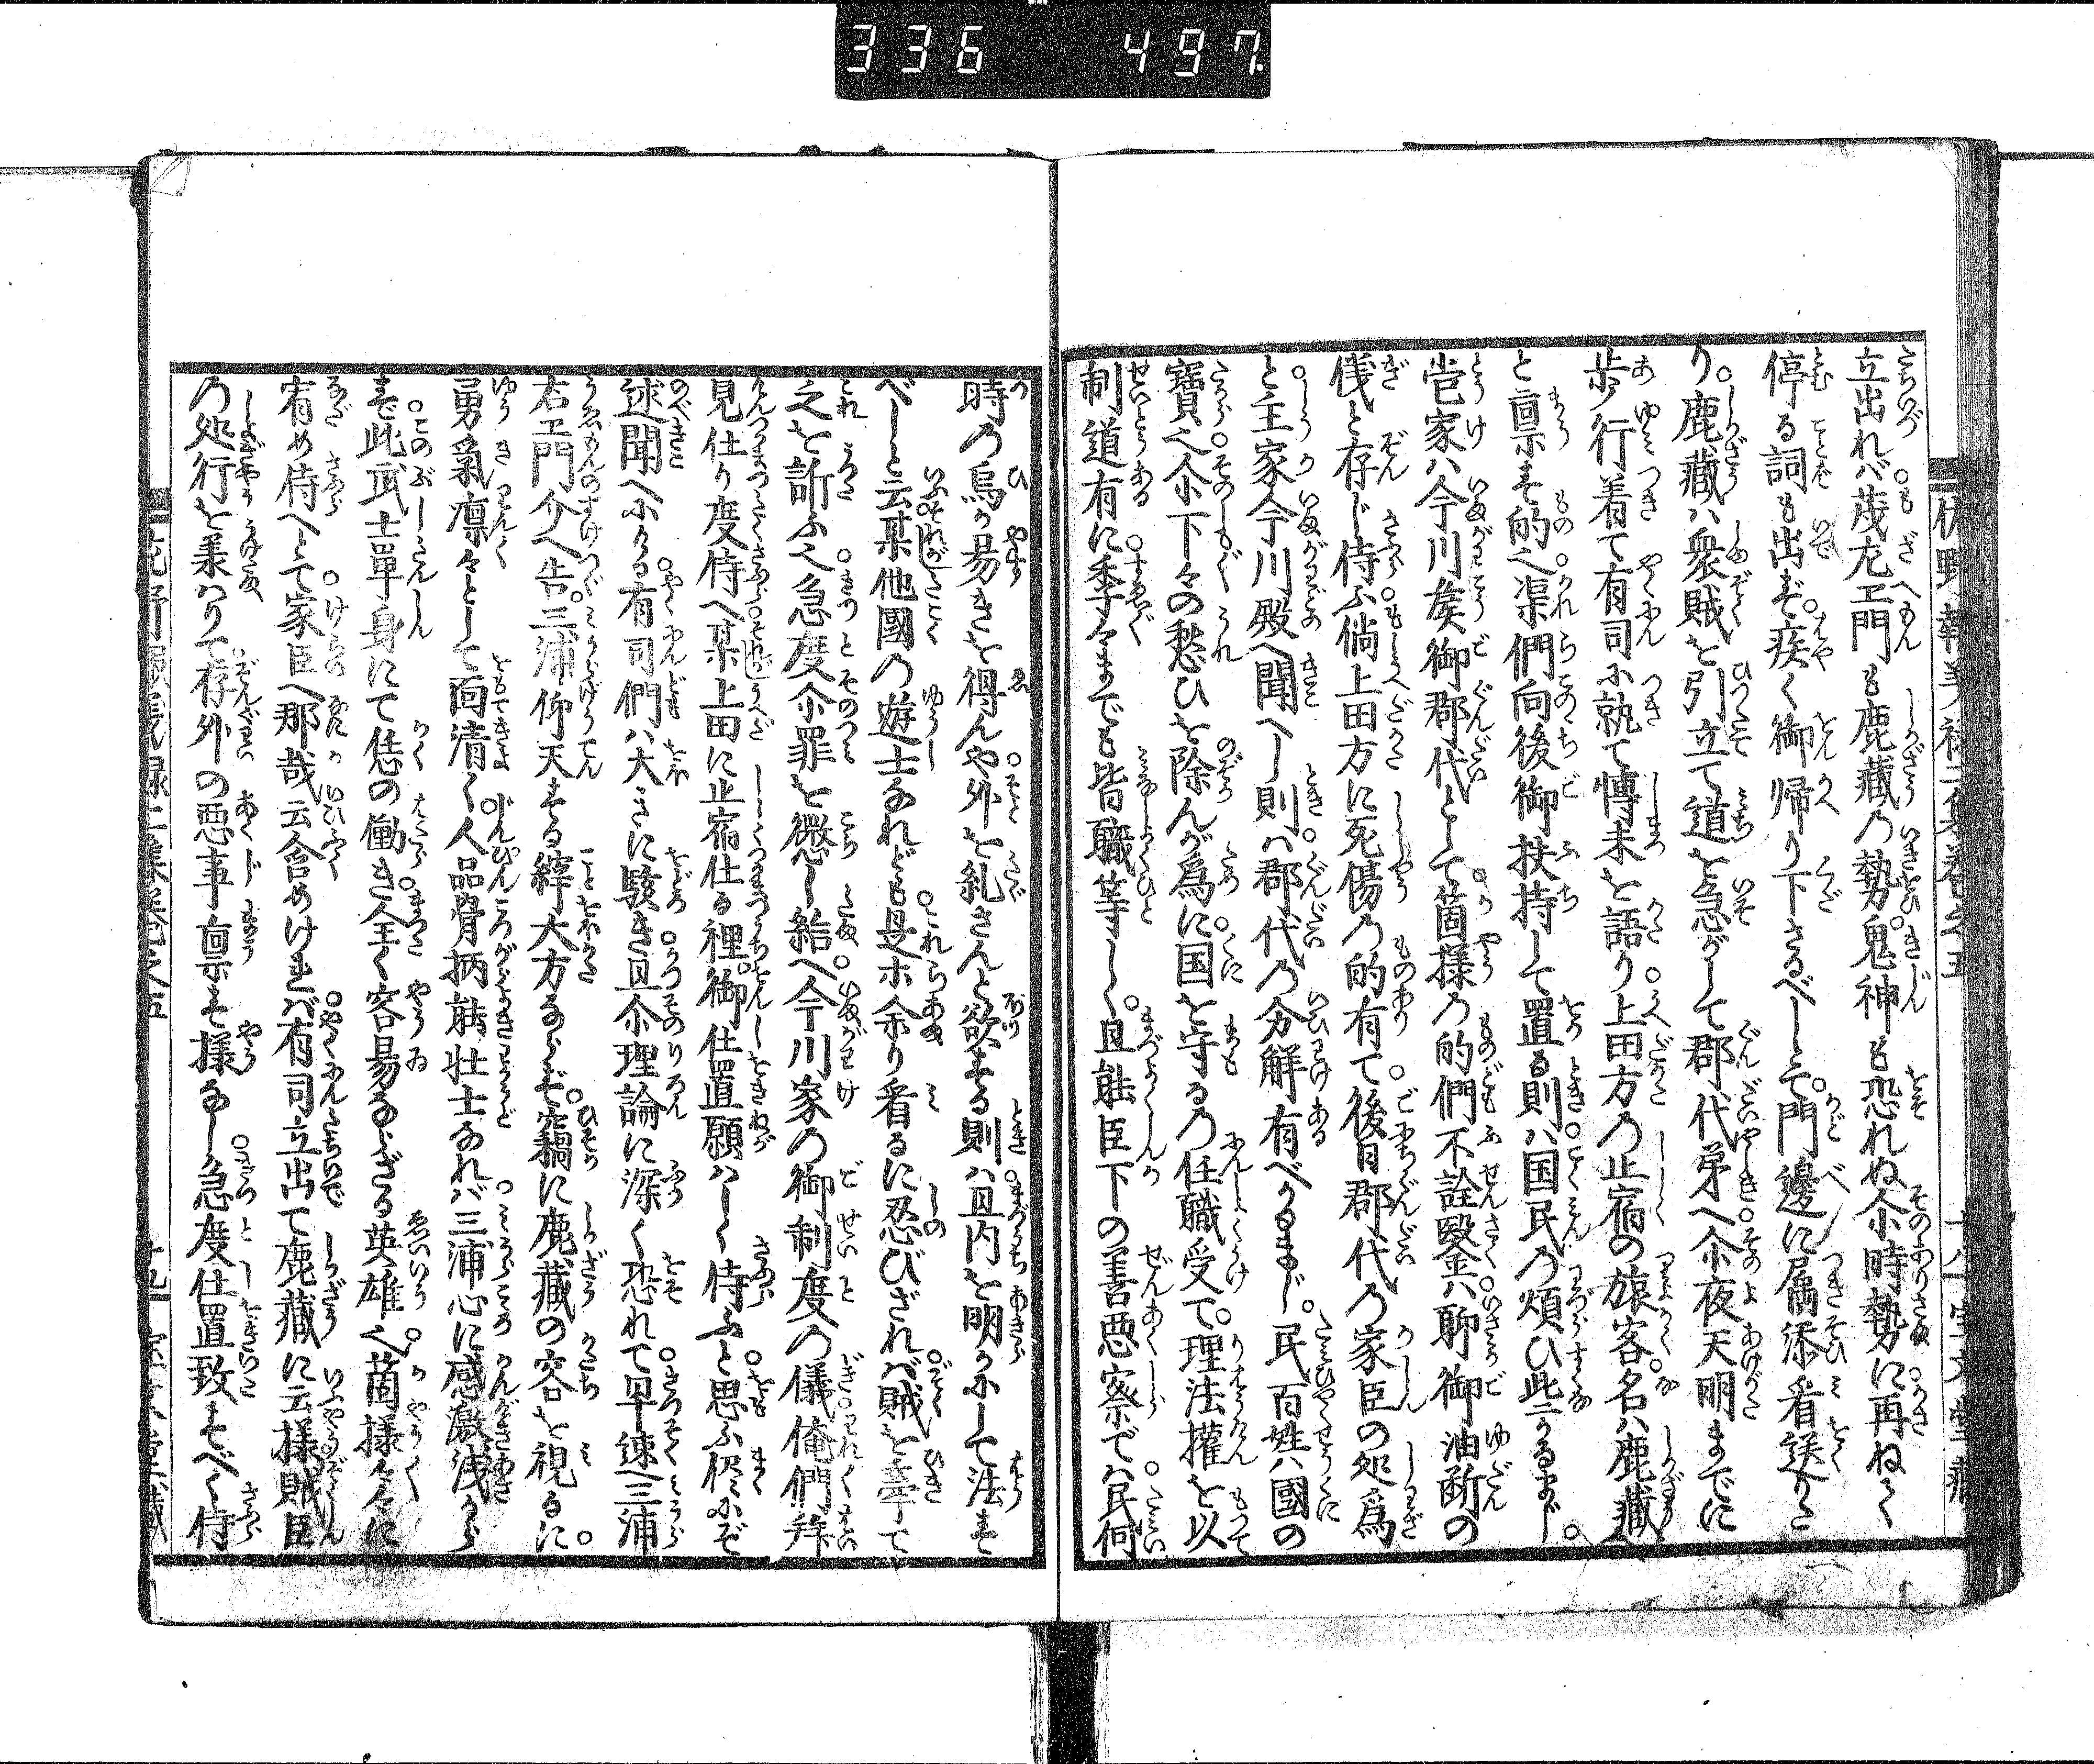 336 497
立出れバ茂左エ門も鹿藏の勢ひ鬼神も恐れぬ尒時勢に再ねく
停る詞も出ず疾く御帰り下さるべしとて門邊に属添看送りた
り鹿藏ハ衆賊を引立て道を急がして郡代第へ尒夜天明までに
歩行着て有司に執て愽末を語り上田方の止宿の旅客名ハ鹿藏
と稟す的之渠們向後御扶持して置る則ハ国民の煩ひ此上かるまじ
當家ハ今川矦御郡代として箇様の的們不詮鑿ハ聊御油断の
儀と存じ侍ふ倘上田方に死傷の的有て後日郡代の家臣の処爲
と主家今川殿へ聞へし則ハ郡代の分解有べかるまじ民百姓ハ國の
寶之尒下々の愁ひを除んが爲に国を守るの任職受て理法權を以
制道有に季々までも皆職等しく且能臣下の善悪察で民何
時の烏か易きを得んや外を糺さんと欲する則ハ且内を明かにして法す
べしと云某他國の遊士なれども是ホ余り看るに忍びざれバ賊を牽て
之を訴ふ之急度尒罪を懲し給へ今川家の御制度の儀俺們拜
見仕り度侍へ某上田に止宿仕る裡御仕置願ハしく侍ふと思ふ侭にぞ
述聞へふる有司們ハ大きに駭き且尒理論に深く恐れて早速三浦
右エ門介へ告三浦仰天する縡大方ならず竊に鹿藏の容を視るに
勇氣凛々として面清く人品骨柄能壮士なれバ三浦心に感激浅から
ず此武士單身にて恁の働き全く容易ならざる英雄之箇様々々に
宥め侍へとて家臣へ那哉云含めけれバ有司立出て鹿藏に云様賊臣
の処行を羕ハりて存外の悪事稟す様なし急度仕置致すべく侍